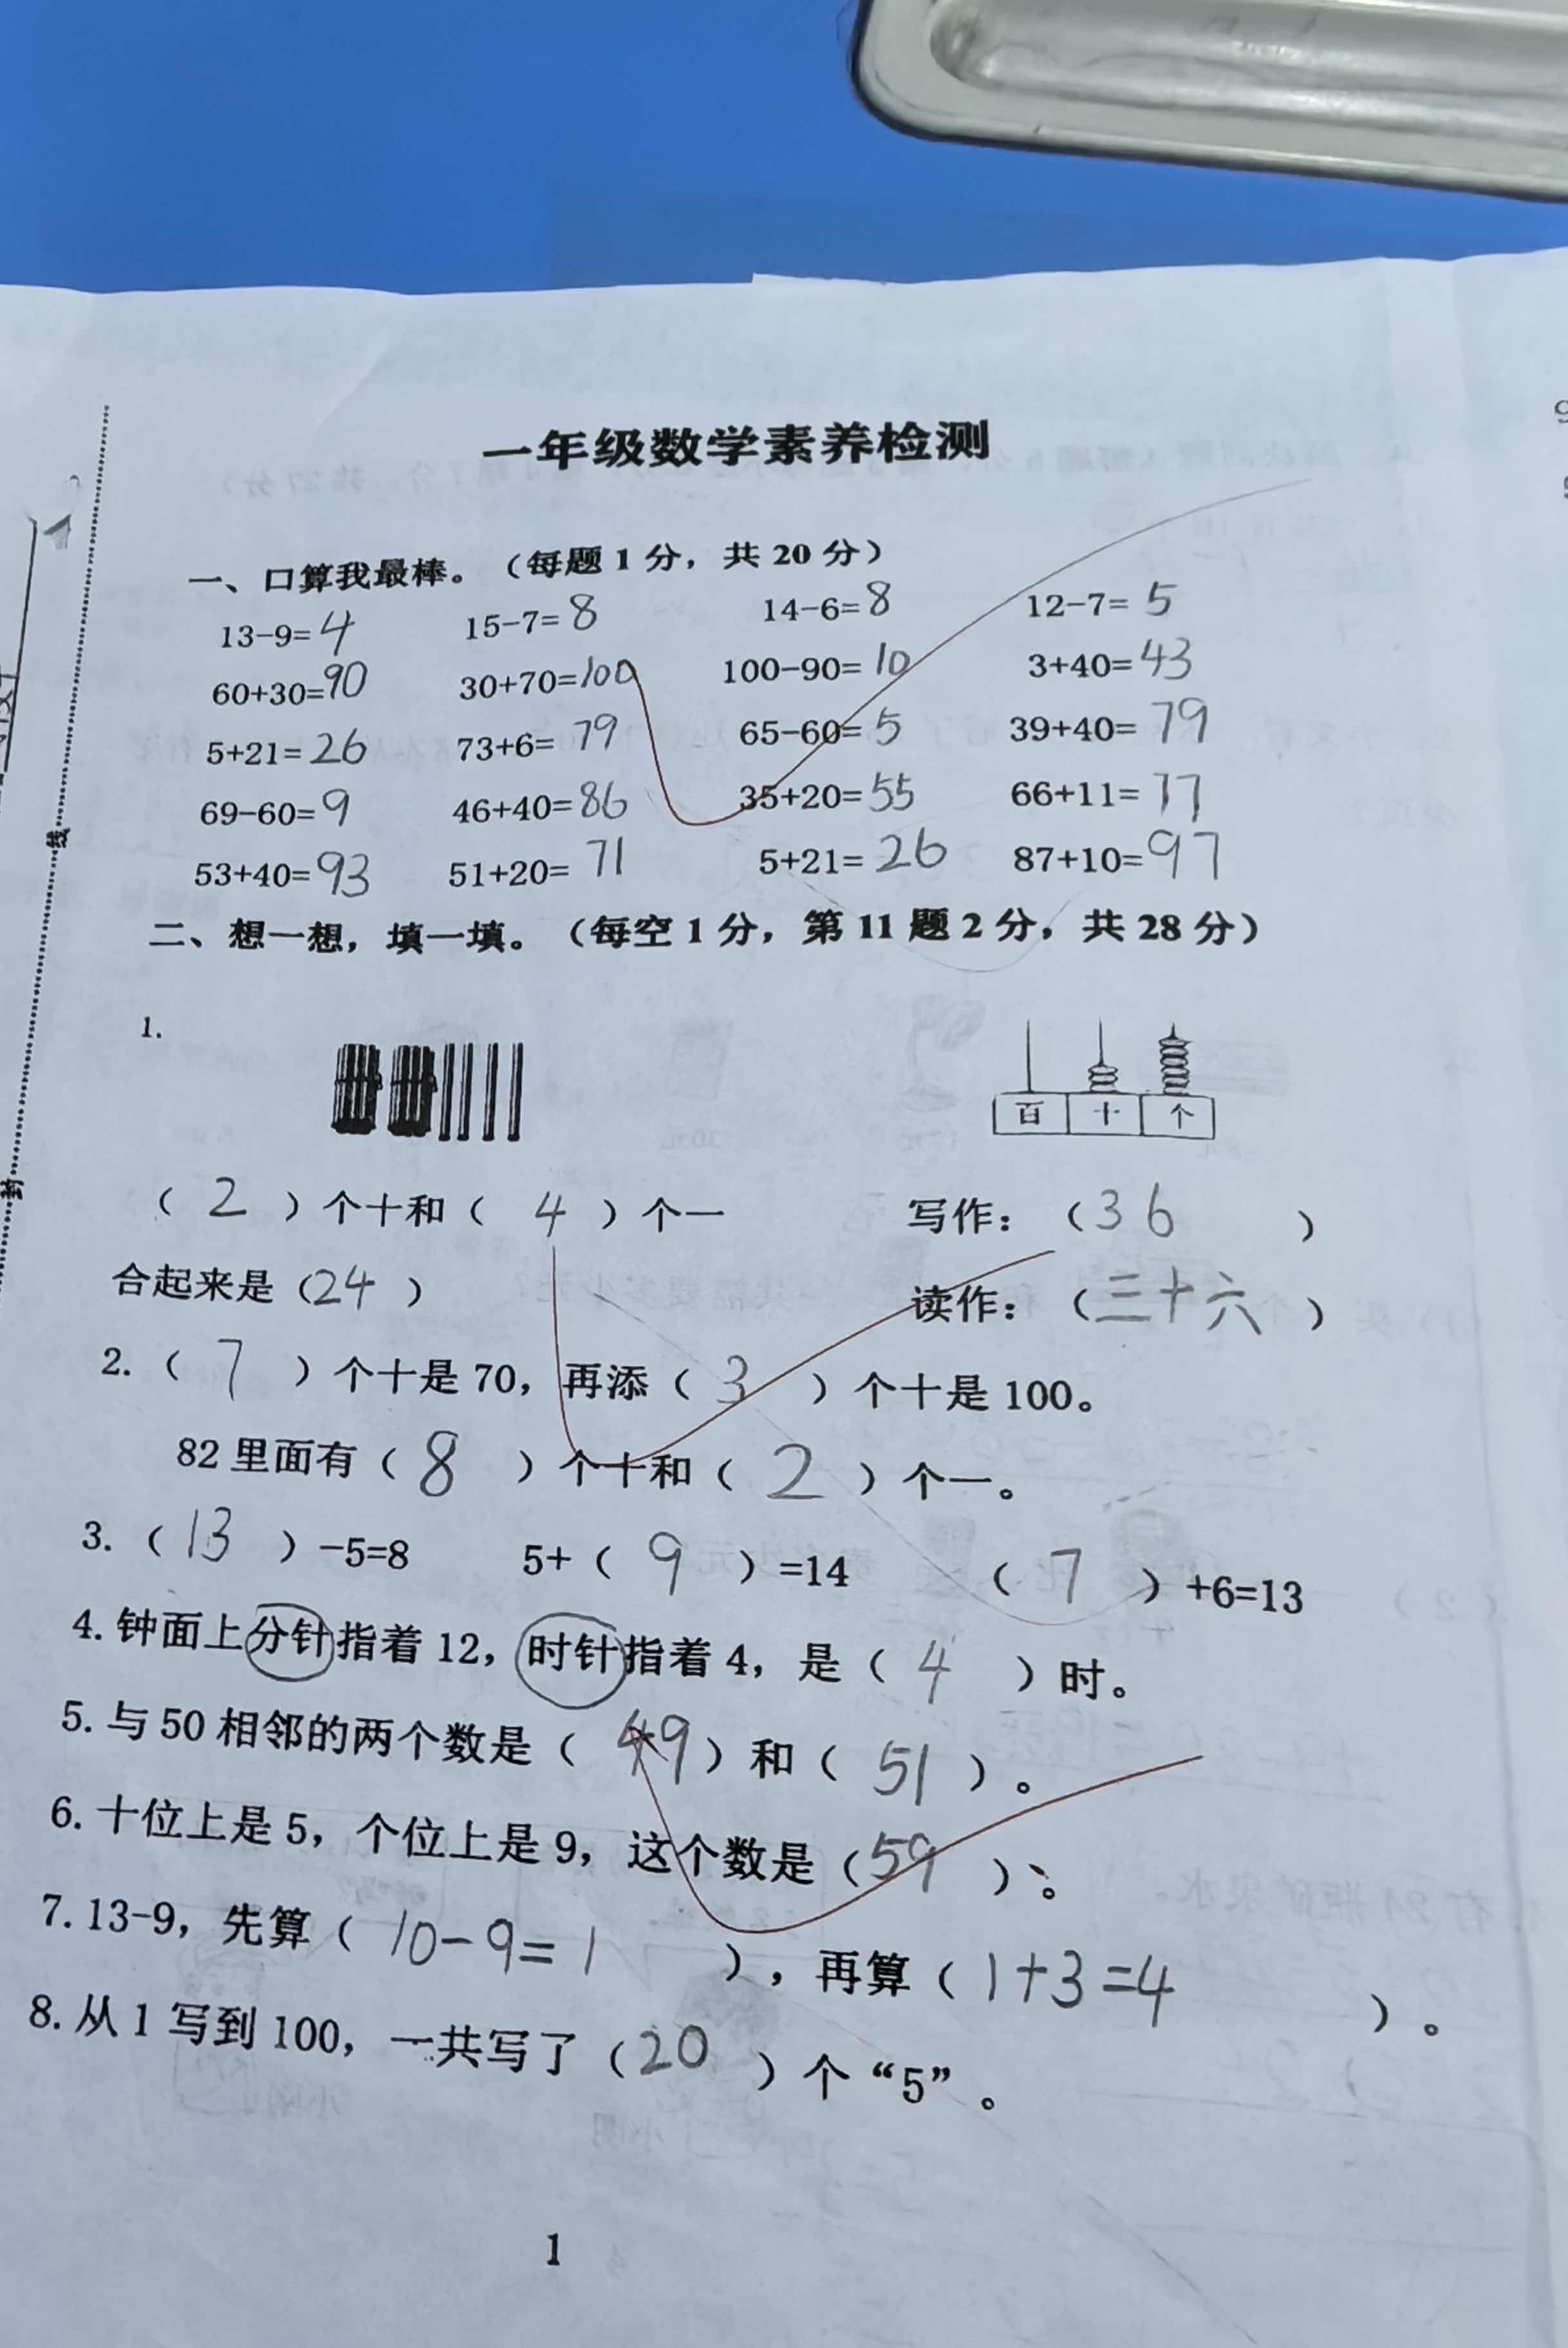 一年级数学素养检测
一、口算我最棒。（每题1分，共20分）
13-9=4 15-7=8 14-6=8 12-7=5
60+30=90 30+70=100 100-90=10 3+40=43
5+21=26 73+6=79 65-60=5 39+40=79
69-60=9 46+40=86 35+20=55 66+11=77
53+40=93 51+20=71 5+21=26 87+10=97
二、想一想，填一填。（每空1分，第11题2分，共28分）
1.
百 十 个
（2）个十和（4）个一 写作：（36）
合起来是（24） 读作：（三十六）
2.（7）个十是70，再添（3）个十是100。
82里面有（8）个十和（2）个一。
3.（13）-5=8 5+（9）=14 （7）+6=13
4.钟面上分针指着12，时针指着4，是（4）时。
5.与50相邻的两个数是（49）和（51）。
6.十位上是5，个位上是9，这个数是（59）。
7.13-9，先算（10-9=1），再算（1+3=4）。
8.从1写到100，一共写了（20）个“5”。
1
线
封